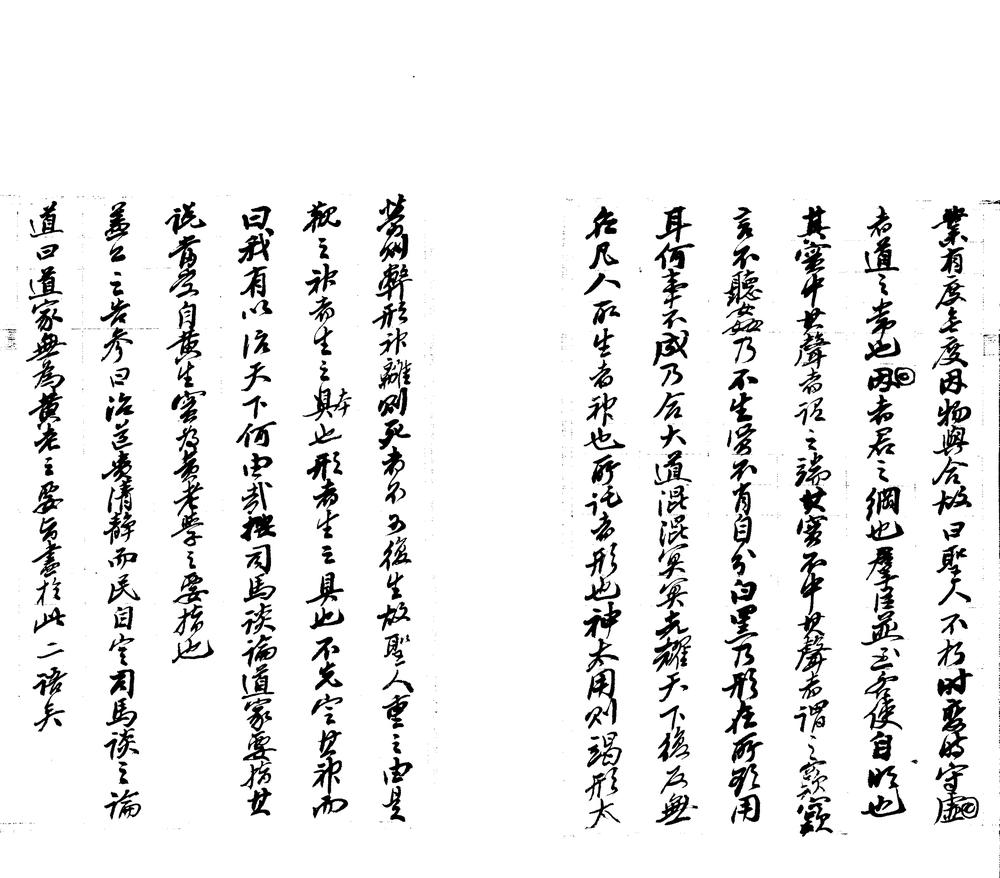 業有度無度因物與合故曰聖人不朽時變時守虛
者道之常也因者君之綱也群臣並至各使自明也
其實中其聲者謂之端其實不中其聲者謂之窾窾
言不聽姦乃不生賢不肖自分白黑乃形在所欲用
耳何事不成乃合大道混混冥冥光耀天下復反無
名凡人所生者神也所託者形也神太用則竭形太
勞則弊形神離則死死者不可復生故聖人重之由是
觀之神者生之具本也形者生之具也不先定其神而
曰我有以治天下何由哉按司馬談論道家要指其
說當定自黃生實為黃老學之要指也
蓋公之告參曰治道貴清靜而民自定司馬談之論
道曰道家無為黃老之要旨盡於此二語矣